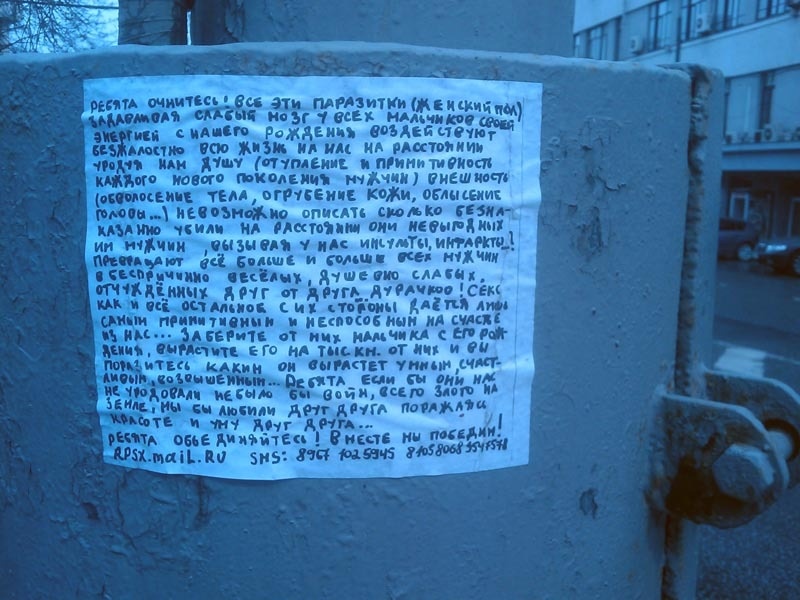 РЕБЯТА ОЧНИТЕСЬ! ВСЕ ЭТИ ПАРАЗИТКИ (ЖЕНСКИЙ ПОЛ)
ЗАДАВЛИВАЯ СЛАБЫЙ МОЗГ У ВСЕХ МАЛЬЧИКОВ СВОЕЙ
ЭНЕРГИЕЙ С НАШЕГО РОЖДЕНИЯ ВОЗДЕЙСТВУЮТ
БЕЗЖАЛОСТНО ВСЮ ЖИЗНЬ НА НАС НА РАССТОЯНИИ
УРОДУЯ НАМ ДУШУ (ОТУПЛЕНИЕ И ПРИМИТИВНОСТЬ
КАЖДОГО НОВОГО ПОКОЛЕНИЯ МУЖЧИН) ВНЕШНОСТЬ
(ОБВОЛОСЕНИЕ ТЕЛА, ОГРУБЕНИЕ КОЖИ, ОБЛЫСЕНИЕ
ГОЛОВЫ...) НЕВОЗМОЖНО ОПИСАТЬ СКОЛЬКО БЕЗНА-
КАЗАННО УБИЛИ НА РАССТОЯНИИ ОНИ НЕВЫГОДНЫХ
ИМ МУЖЧИН, ВЫЗЫВАЯ У НАС ИНСУЛЬТЫ, ИНФАРКТЫ..!
ПРЕВРАЩАЮТ ВСЁ БОЛЬШЕ И БОЛЬШЕ ВСЕХ МУЖЧИН
В БЕСПРИЧИННО ВЕСЁЛЫХ, ДУШЕВНО СЛАБЫХ,
ОТЧУЖДЁННЫХ ДРУГ ОТ ДРУГА ДУРАЧКОВ! СЕКС
КАК И ВСЁ ОСТАЛЬНОЕ С ИХ СТОРОНЫ ДАЁТСЯ ЛИШЬ
САМЫМ ПРИМИТИВНЫМ И НЕСПОСОБНЫМ НА СЧАСТЬЕ
ИЗ НАС... ЗАБЕРИТЕ ОТ НИХ МАЛЬЧИКА С ЕГО РОЖ-
ДЕНИЯ, ВЫРАСТИТЕ ЕГО НА ТЫС. КМ. ОТ НИХ И ВЫ
ПОРАЗИТЕСЬ КАКИМ ОН ВЫРАСТЕТ УМНЫМ, СЧАСТ-
ЛИВЫМ, ВОЗВЫШЕННЫМ... РЕБЯТА ЕСЛИ БЫ ОНИ НАС
НЕ УРОДОВАЛИ НЕ БЫЛО БЫ ВОЙН, ВСЕГО ЗЛОГО НА
ЗЕМЛЕ, МЫ БЫ ЛЮБИЛИ ДРУГ ДРУГА ПОРАЖАЯСЬ
КРАСОТЕ И УМУ ДРУГ ДРУГА...
РЕБЯТА ОБЪЕДИНЯЙТЕСЬ! ВМЕСТЕ МЫ ПОБЕДИМ!
RPSX.maiL.RU SMS: 8967 1025945